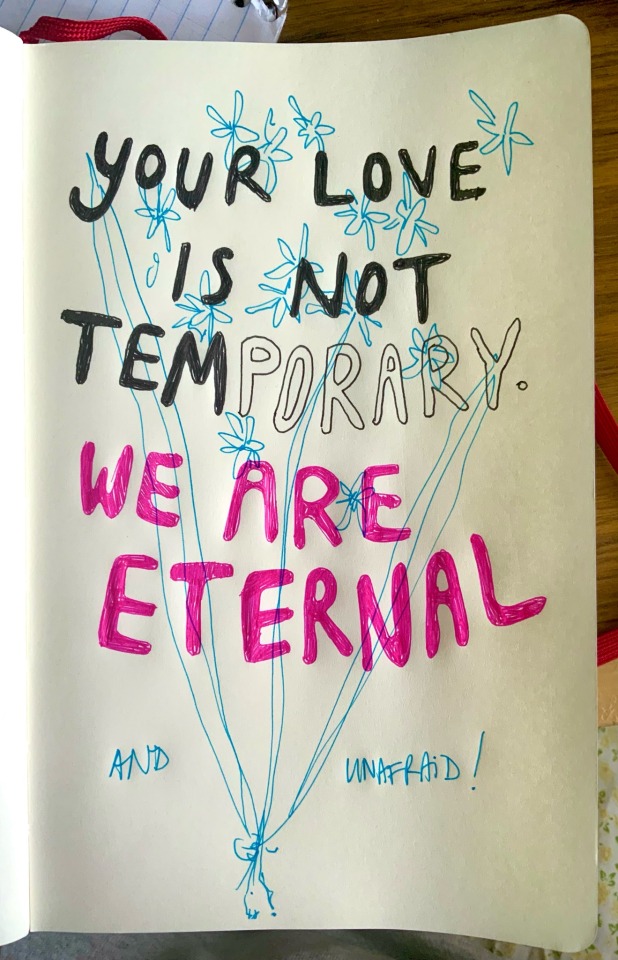 YOUR LOVE
IS NOT
TEMPORARY.
WE ARE
ETERNAL
AND UNAFRAiD!